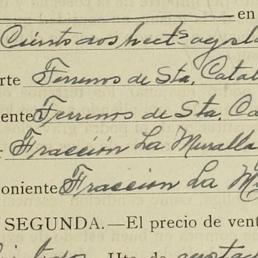 en
Ciento dos hect.s
rte Terrenos de Sta. Catal
ente Terrenos de Sta. Ca
Fracción La Muralla
oniente Fracción La M
SEGUNDA.—El precio de vent